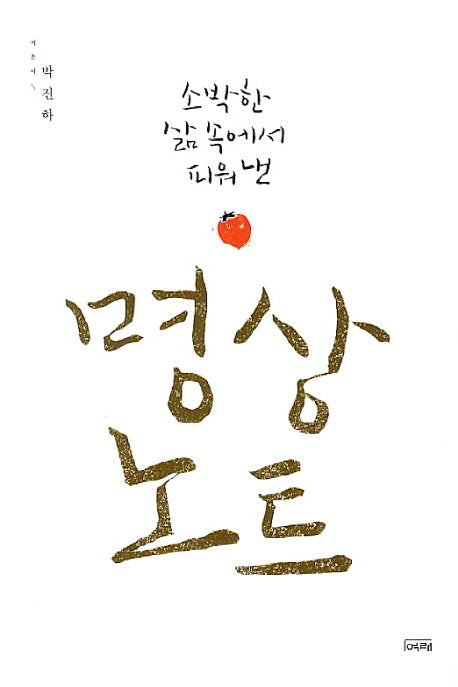 지은이
박진하
소박한
삶 속에서
피워 낸
명상
노트
여래